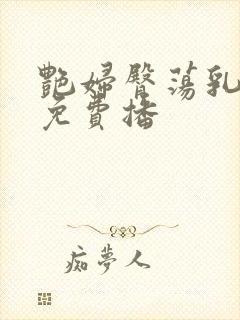 艷婦臀蕩乳
免費播
痴夢人